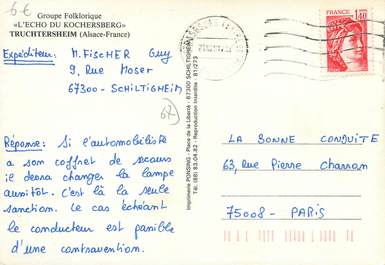 6€
Groupe Folklorique
«L'ECHO DU KOCHERSBERG»
TRUCHTERSHEIM (Alsace-France)
Expéditeur: M. FiSCHER Guy
9, Rue Moser
67300 - SCHiLTiGHEiM
67
Réponse: Si l'automobiliste
a son coffret de secours
il devra changer la lampe
aussitôt. C'est là la seule
sanction. Le cas échéant
le conducteur est passible
d'une contravention.
Imprimerie PONSING - Place de la Liberté - 67300 SCHILTIGHEIM
Tél. (88) 83.04.82 - Reproduction Interdite - 81/273
FRANCE
1,40
LA BONNE CONDUITE
63, Rue Pierre Charron
75008 - PARIS